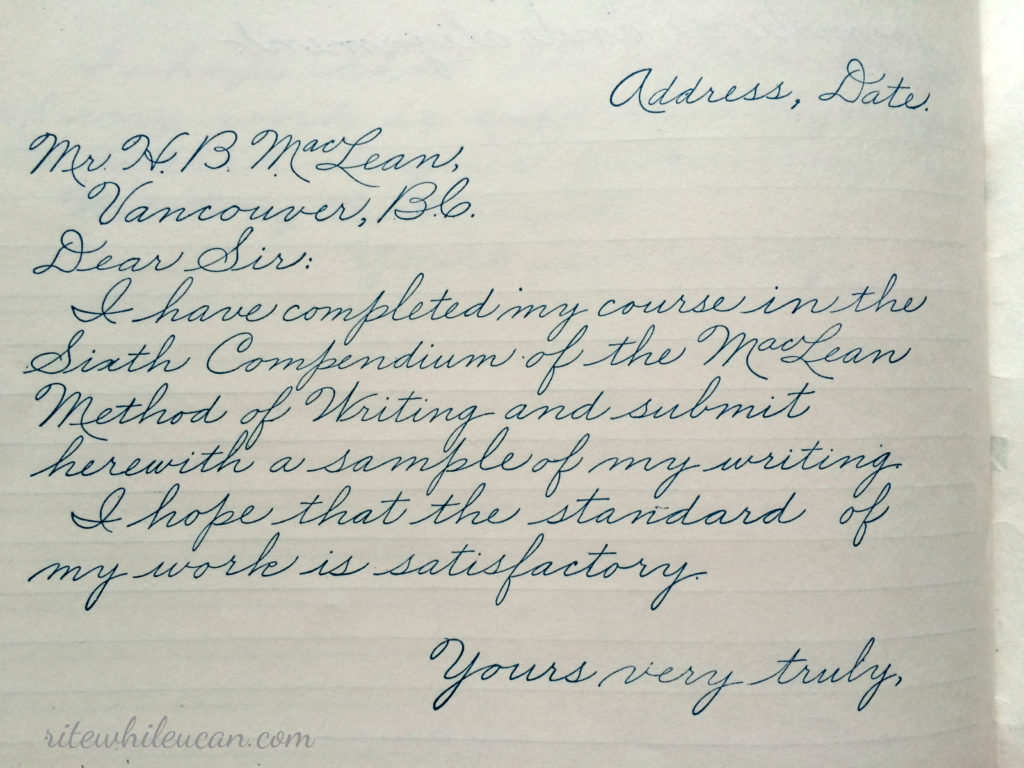 Address, Date.
Mr. H. B. MacLean,
Vancouver, B.C.
Dear Sir:
I have completed my course in the
Sixth Compendium of the MacLean
Method of Writing and submit
herewith a sample of my writing.
I hope that the standard of
my work is satisfactory.
Yours very truly,
ritewhileucan.com